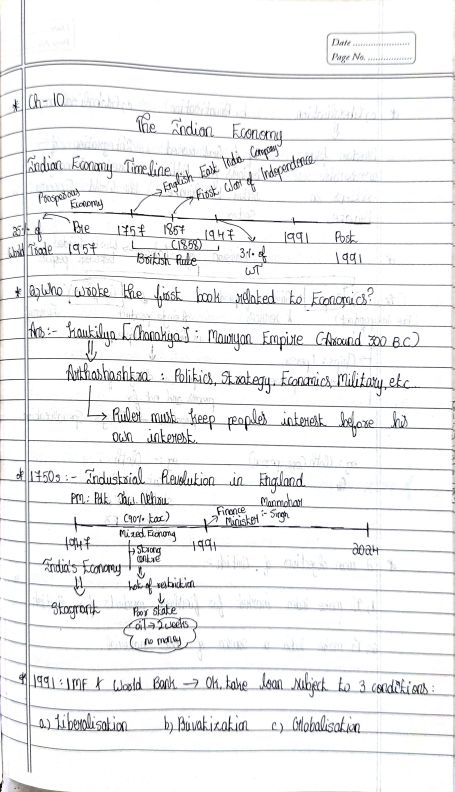 Date
Page No.
* Ch-10
The Indian Economy
Indian Economy Timeline
English East India Company
First War of Independence
Prosperous Economy
25% of World Trade
Pre 1757 1857 1947 1991 Post
1957 (1858) 1991
British Rule 3% of WT
* Q) Who wrote the first book related to Economics?
Ans:- Kautilya [Chanakya] : Mauryan Empire (Around 300 B.C)
Arthashashtra : Politics, Strategy, Economics, Military, etc.
→ Ruler must keep peoples interest before his
own interest.
* 1750s :- Industrial Revolution in England
PM: Pdt. Jawa. Nehru
Manmohan
(90% tax) Finance Minister :- Singh
Mixed Economy
1947 1991 2024
India's Economy
Strong
Lot of restriction
Stagnant
Poor state
oil → 2 weeks
no money
* 1991 : IMF & World Bank → Ok, take loan subject to 3 conditions :
a.) Liberalisation b) Privatization c) Globalisation